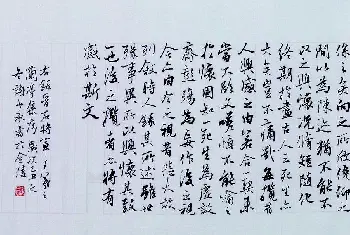 係之矣向之所欣俛仰之
間以為陳迹猶不能不
以之興懷況脩短隨化
終期於盡古人云死生亦
大矣豈不痛哉每攬昔
人興感之由若合一契未
嘗不臨文嗟悼不能喻之
於懷固知一死生為虛誕
齊彭殤為妄作後之視
今亦由今之視昔悲夫故
列敘時人錄其所述雖世
殊事異所以興懷其致
一也後之攬者亦將有
感於斯文
右錄晉右將軍王羲之
蘭亭集序
書於金陵